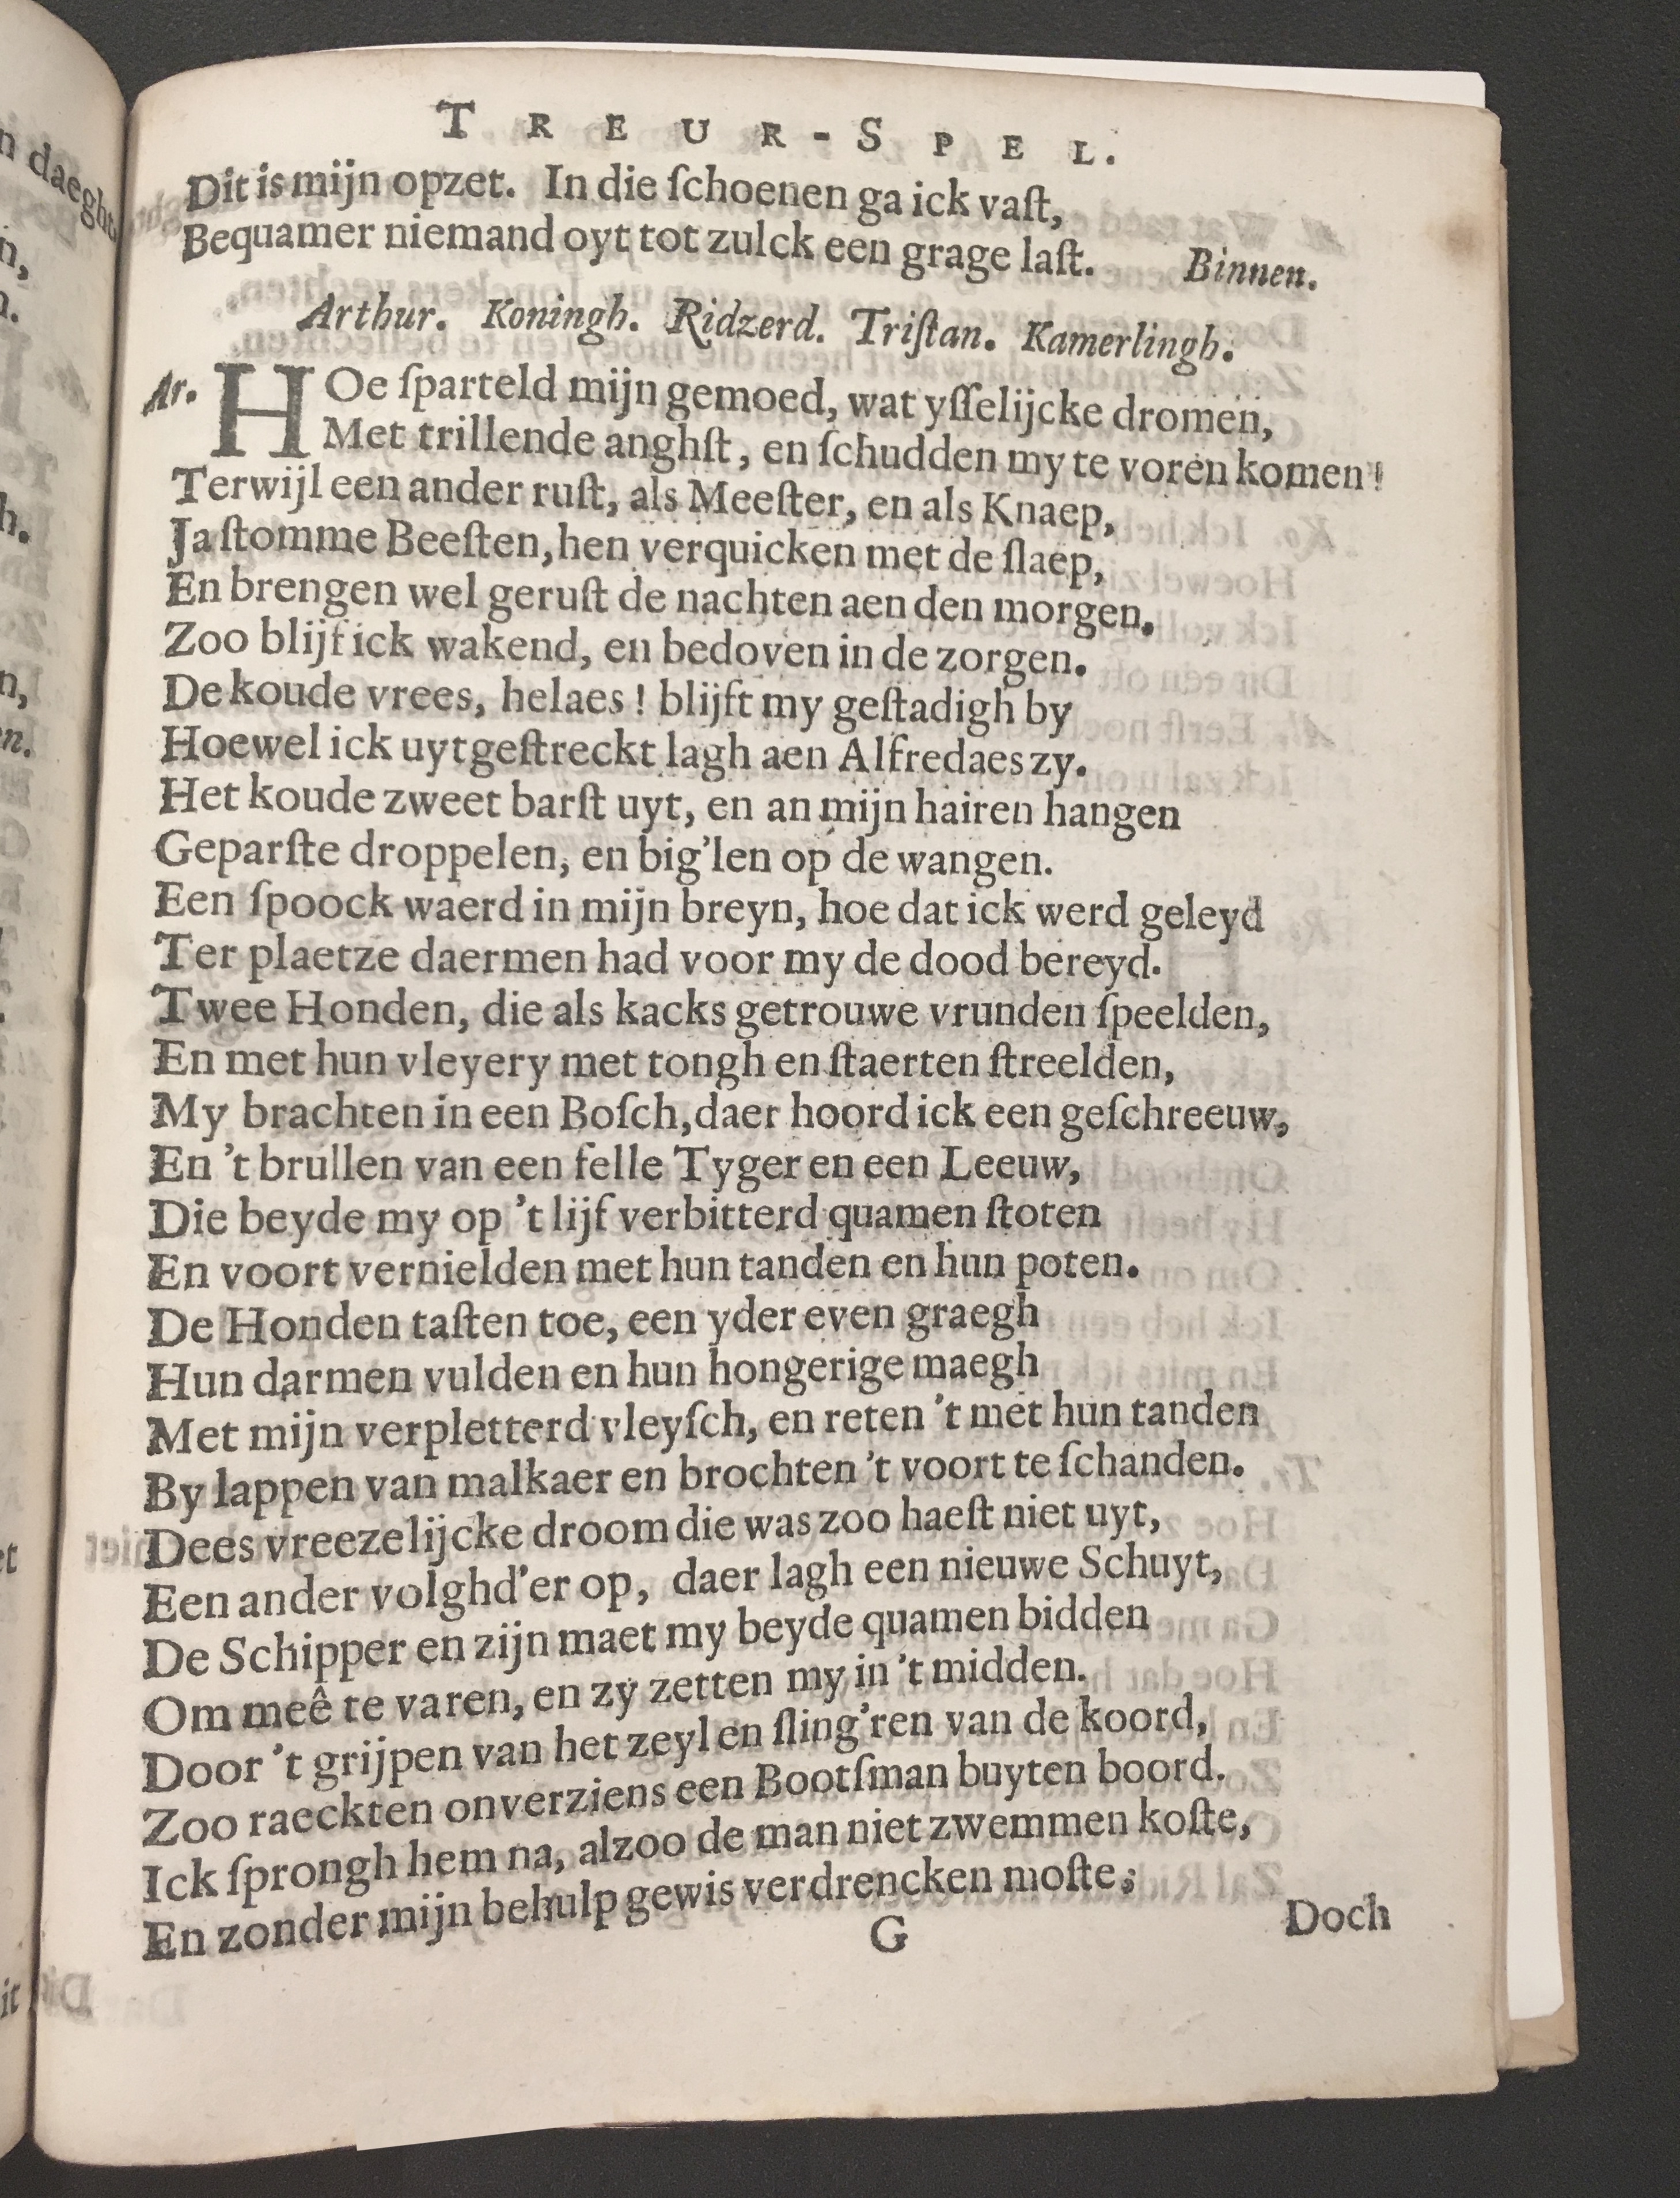 TREUR-SPEL.
Dit is mijn opzet. In die ſchoenen ga ick vaſt,
Bequamer niemand oyt tot zulck een grage laſt. Binnen.
Arthur. Koningh. Ridzerd. Triſtan. Kamerlingh.
Ar. HOe ſparteld mijn gemoed, wat yſſelijcke dromen,
Met trillende anghſt, en ſchudden my te voren komen!
Terwijl een ander ruſt, als Meeſter, en als Knaep,
Ja ſtomme Beeſten, hen verquicken met de ſlaep,
En brengen wel geruſt de nachten aen den morgen,
Zoo blijf ick wakend, en bedoven in de zorgen.
De koude vrees, helaes! blijft my geſtadigh by
Hoewel ick uytgeſtreckt lagh aen Alfredaes zy.
Het koude zweet barſt uyt, en an mijn hairen hangen
Geparſte droppelen, en big'len op de wangen.
Een ſpoock waerd in mijn breyn, hoe dat ick werd geleyd
Ter plaetze daermen had voor my de dood bereyd.
Twee Honden, die als kacks getrouwe vrunden ſpeelden,
En met hun vleyery met tongh en ſtaerten ſtreelden,
My brachten in een Boſch, daer hoord ick een geſchreeuw,
En 't brullen van een felle Tyger en een Leeuw,
Die beyde my op 't lijf verbitterd quamen ſtoten
En voort vernielden met hun tanden en hun poten.
De Honden taſten toe, een yder even graegh
Hun darmen vulden en hun hongerige maegh
Met mijn verpletterd vleyſch, en reten 't met hun tanden
By lappen van malkaer en brochten 't voort te ſchanden.
Dees vreezelijcke droom die was zoo haeſt niet uyt,
Een ander volghd'er op, daer lagh een nieuwe Schuyt,
De Schipper en zijn maet my beyde quamen bidden
Om meê te varen, en zy zetten my in 't midden.
Door 't grijpen van het zeyl en ſling'ren van de koord,
Zoo raeckten onverziens een Bootſman buyten boord.
Ick ſprongh hem na, alzoo de man niet zwemmen koſte,
En zonder mijn behulp gewis verdrencken moſte;
G Doch